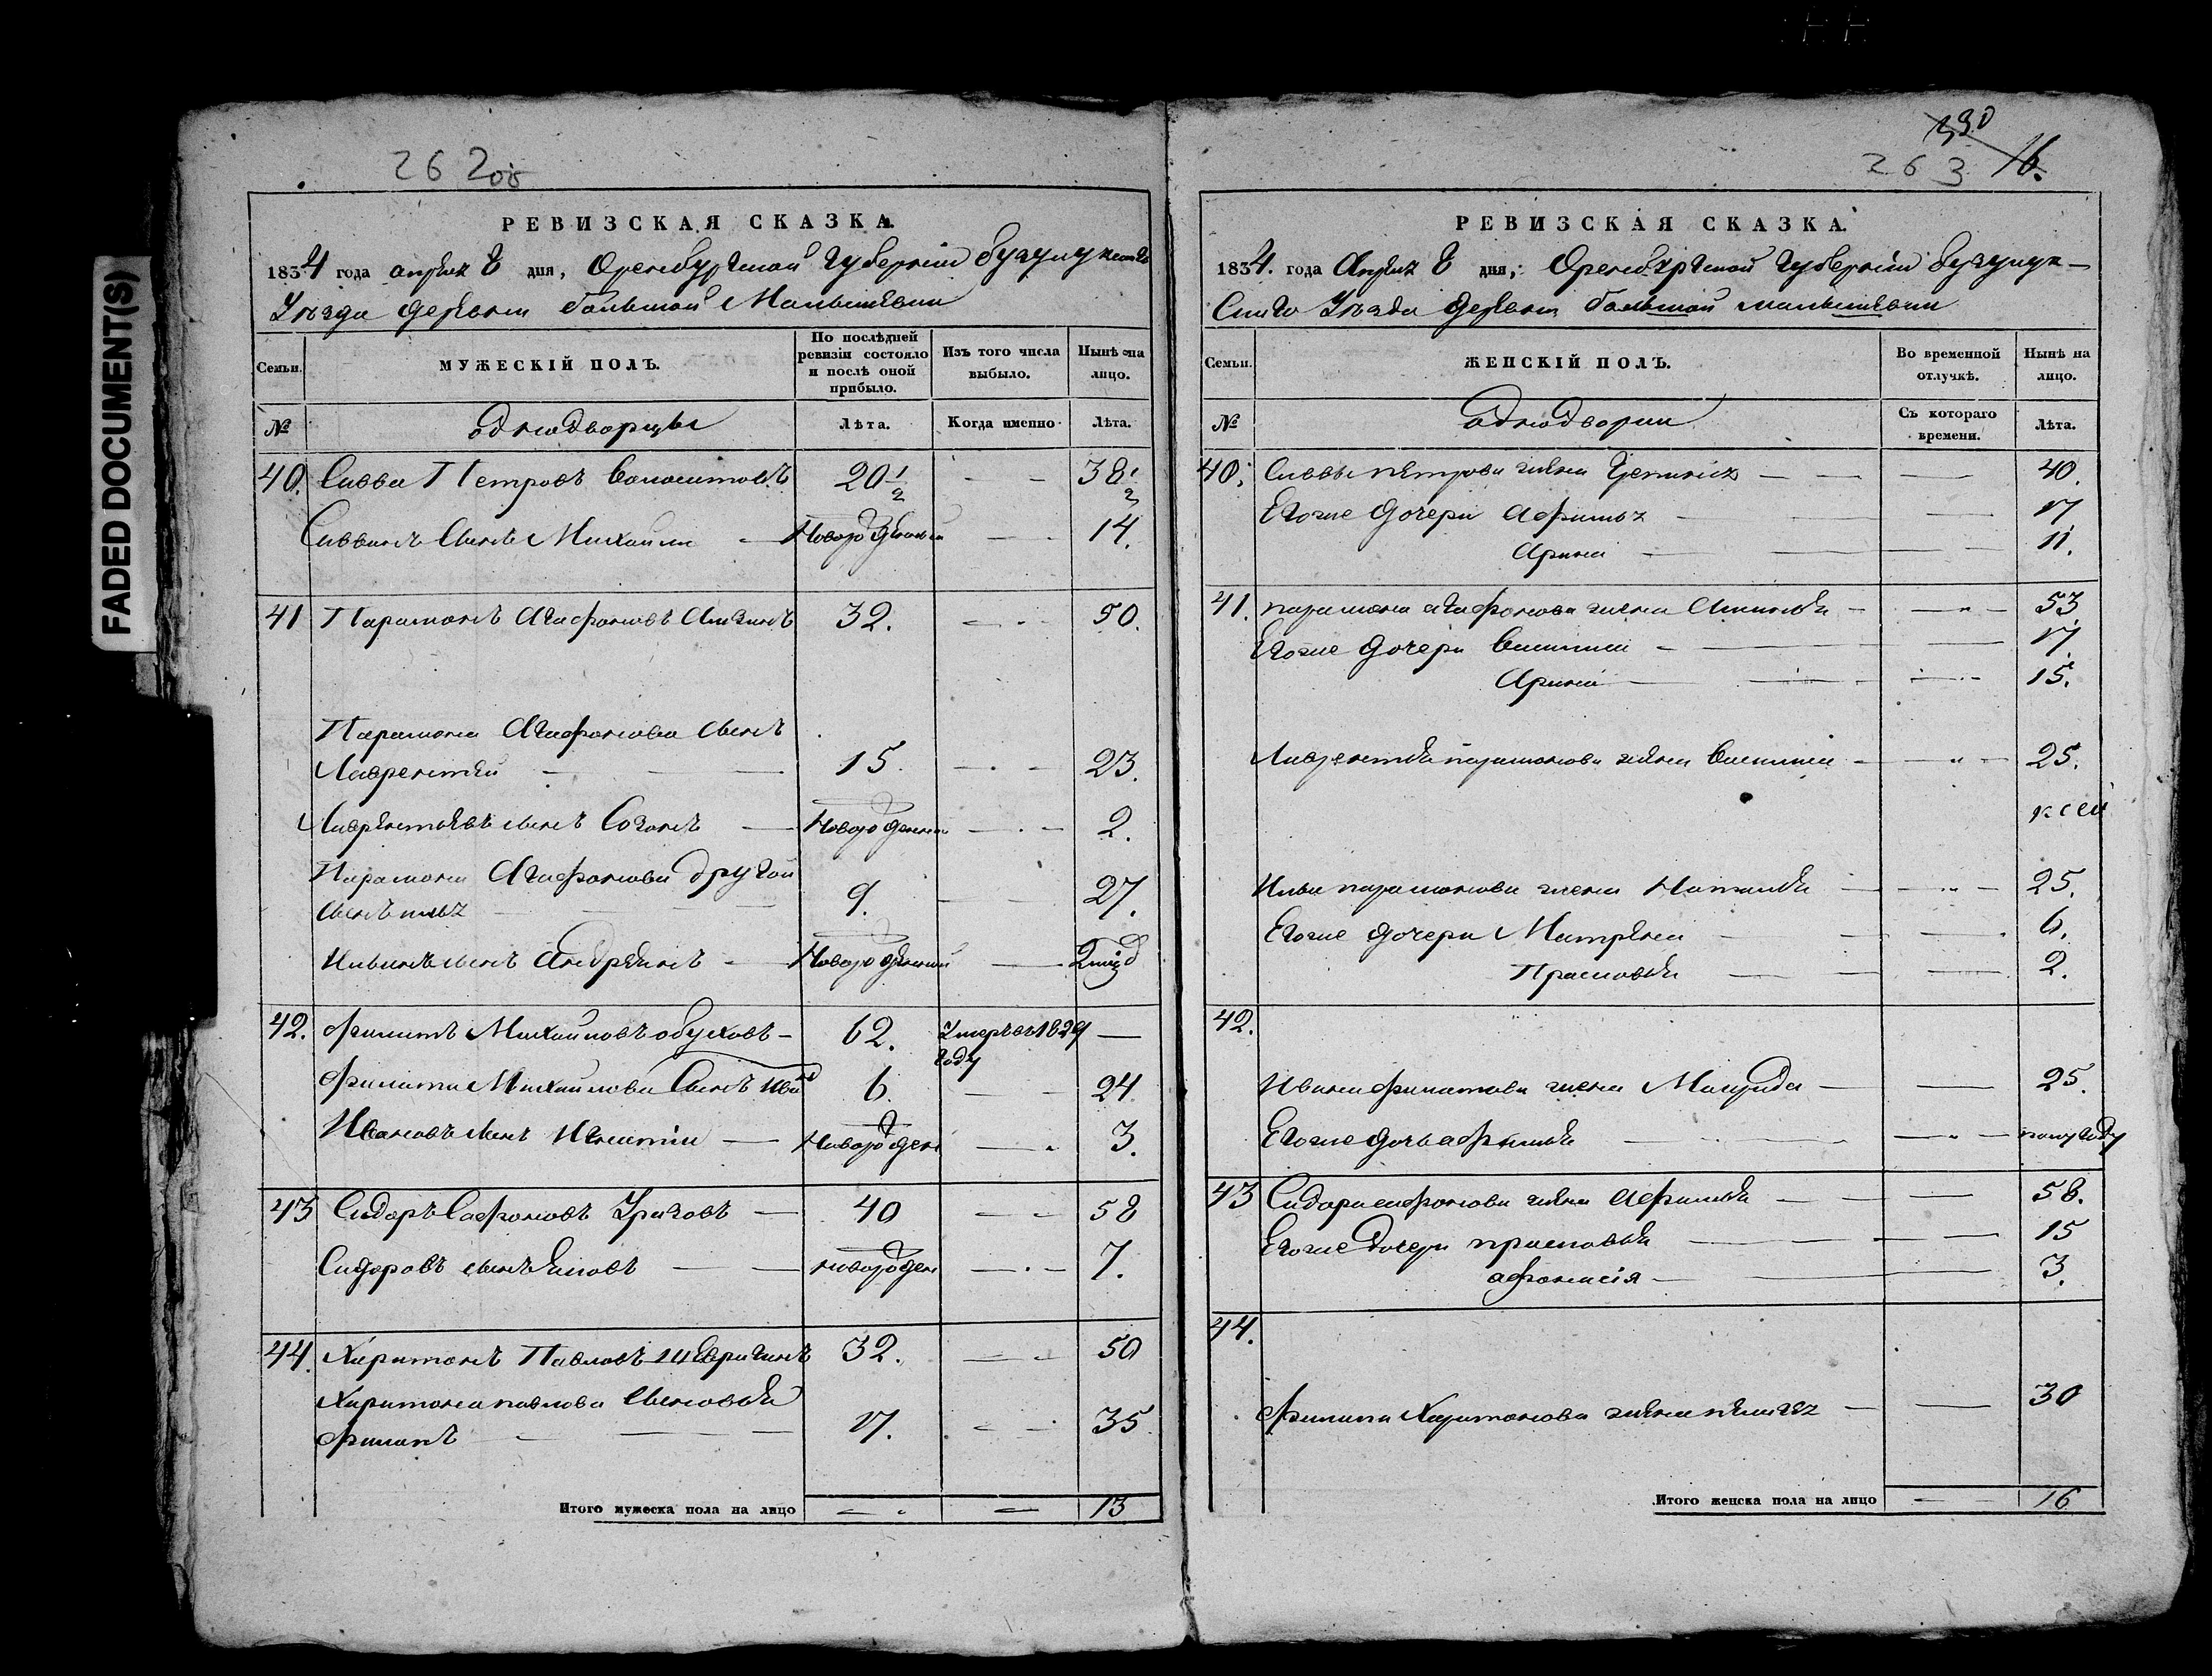 FADED DOCUMENT(S)
262об
РЕВИЗСКАЯ СКАЗКА.
1834 года апреля 8 дня, Оренбургской губернии бугурук
Уезда деревни большой Малышевки
Семьи.
МУЖЕСКІЙ ПОЛЪ.
По послѣдней ревизіи состояло и послѣ оной прибыло.
Изъ того числа выбыло.
Нынѣ на лицо.
№
однодворцы
Лѣта.
Когда именно
Лѣта.
40. Савва Петровъ 20 1/2 — — 38 1/2
Саввинъ сынъ Михайла — Новорожденный — 14.
41 Парамонъ Агафоновъ 32. — 50.
Парамона Агафонова сынъ
Лаврентей — 15. — 23.
Лаврентьевъ сынъ Созонъ — Новорожденны — 2.
Парамона Агафонова другой
сынъ илья 9. — 27.
Ильинъ сынъ Андреянъ — Новорожденный —
42. Филатъ Михайловъ обуховъ — 62. Умеръ въ 1829 году —
Филата Михайлова Сынъ Ива 6. — 24
Ивановъ сынъ Игнатій — Новорожден — 3.
43 Сидоръ Сафоновъ — 40 — 58
Сидоровъ сынъ — новорожден — 7.
44. Харитонъ Павловъ 32. — 50
Харитона павлова
филипъ — 17. — 35
Итого мужеска пола на лицо — — 13
390
263 16.
РЕВИЗСКАЯ СКАЗКА.
1834. года Апреля 8 дня, Оренбургской губерніи бугурук—
Скаго Уезда деревни большой малышевки
Семьи.
ЖЕНСКІЙ ПОЛЪ.
Во временной отлучкѣ.
Нынѣ на лицо.
№
однодворки
Съ котораго времени.
Лѣта.
40. Саввы петрова жена — — 40.
Егоже дочери Афимья — 17
Арина — 11.
41. парамона агафонова жена — 53
Егоже дочери — 17.
Арина — 15.
Лаврентея парамонова жена — 25.
Ильи парамонова жена Наталья — 25.
Егоже дочери Матрена — 6.
Прасковья — 2.
42.
Ивана филатова жена — 25.
Егоже дочь афимья — полугоду
43 Сидора сафонова жена Афимья — 58.
Егоже дочери прасковья — 15
афонасія — 3.
44.
филипа Харитонова жена пелагея — 30
Итого женска пола на лицо — 16